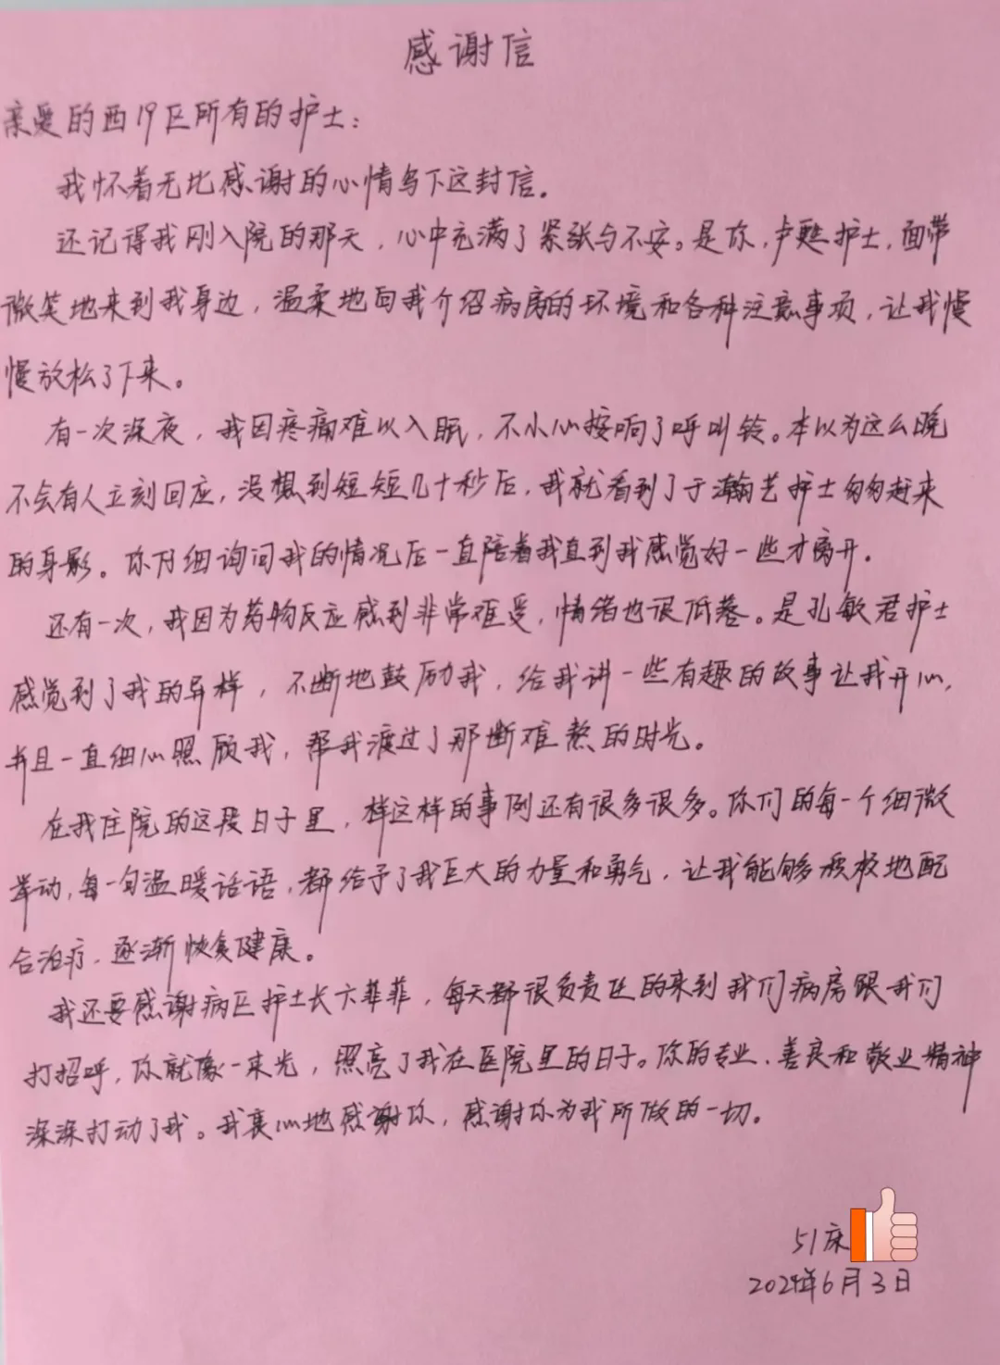 感谢信
亲爱的西19区所有的护士：
我怀着无比感谢的心情写下这封信。
还记得我刚入院的那天，心中充满了紧张与不安。是你，卢甦护士，面带
微笑地来到我身边，温柔地向我介绍病房的环境和各种注意事项，让我慢
慢放松了下来。
有一次深夜，我因疼痛难以入眠，不小心按响了呼叫铃。本以为这么晚
不会有人立刻回应，没想到短短几十秒后，我就看到了于瀚艺护士匆匆赶来
的身影。你仔细询问我的情况后一直陪着我直到我感觉好一些才离开。
还有一次，我因为药物反应感到非常难受，情绪也很低落。是孔敏君护士
感觉到了我的异样，不断地鼓励我，给我讲一些有趣的故事让我开心，
并且一直细心照顾我，帮我渡过了那断难熬的时光。
在我住院的这段日子里，样这样的事例还有很多很多。你们的每一个细微
举动，每一句温暖话语，都给予了我巨大的力量和勇气，让我能够积极地配
合治疗，逐渐恢复健康。
我还要感谢病区护士长六菲菲，每天都很负责任的来到我们病房跟我们
打招呼，你就像一束光，照亮了我在医院里的日子。你的专业、善良和敬业精神
深深打动了我。我衷心地感谢你，感谢你为我所做的一切。
51床
2024年6月3日